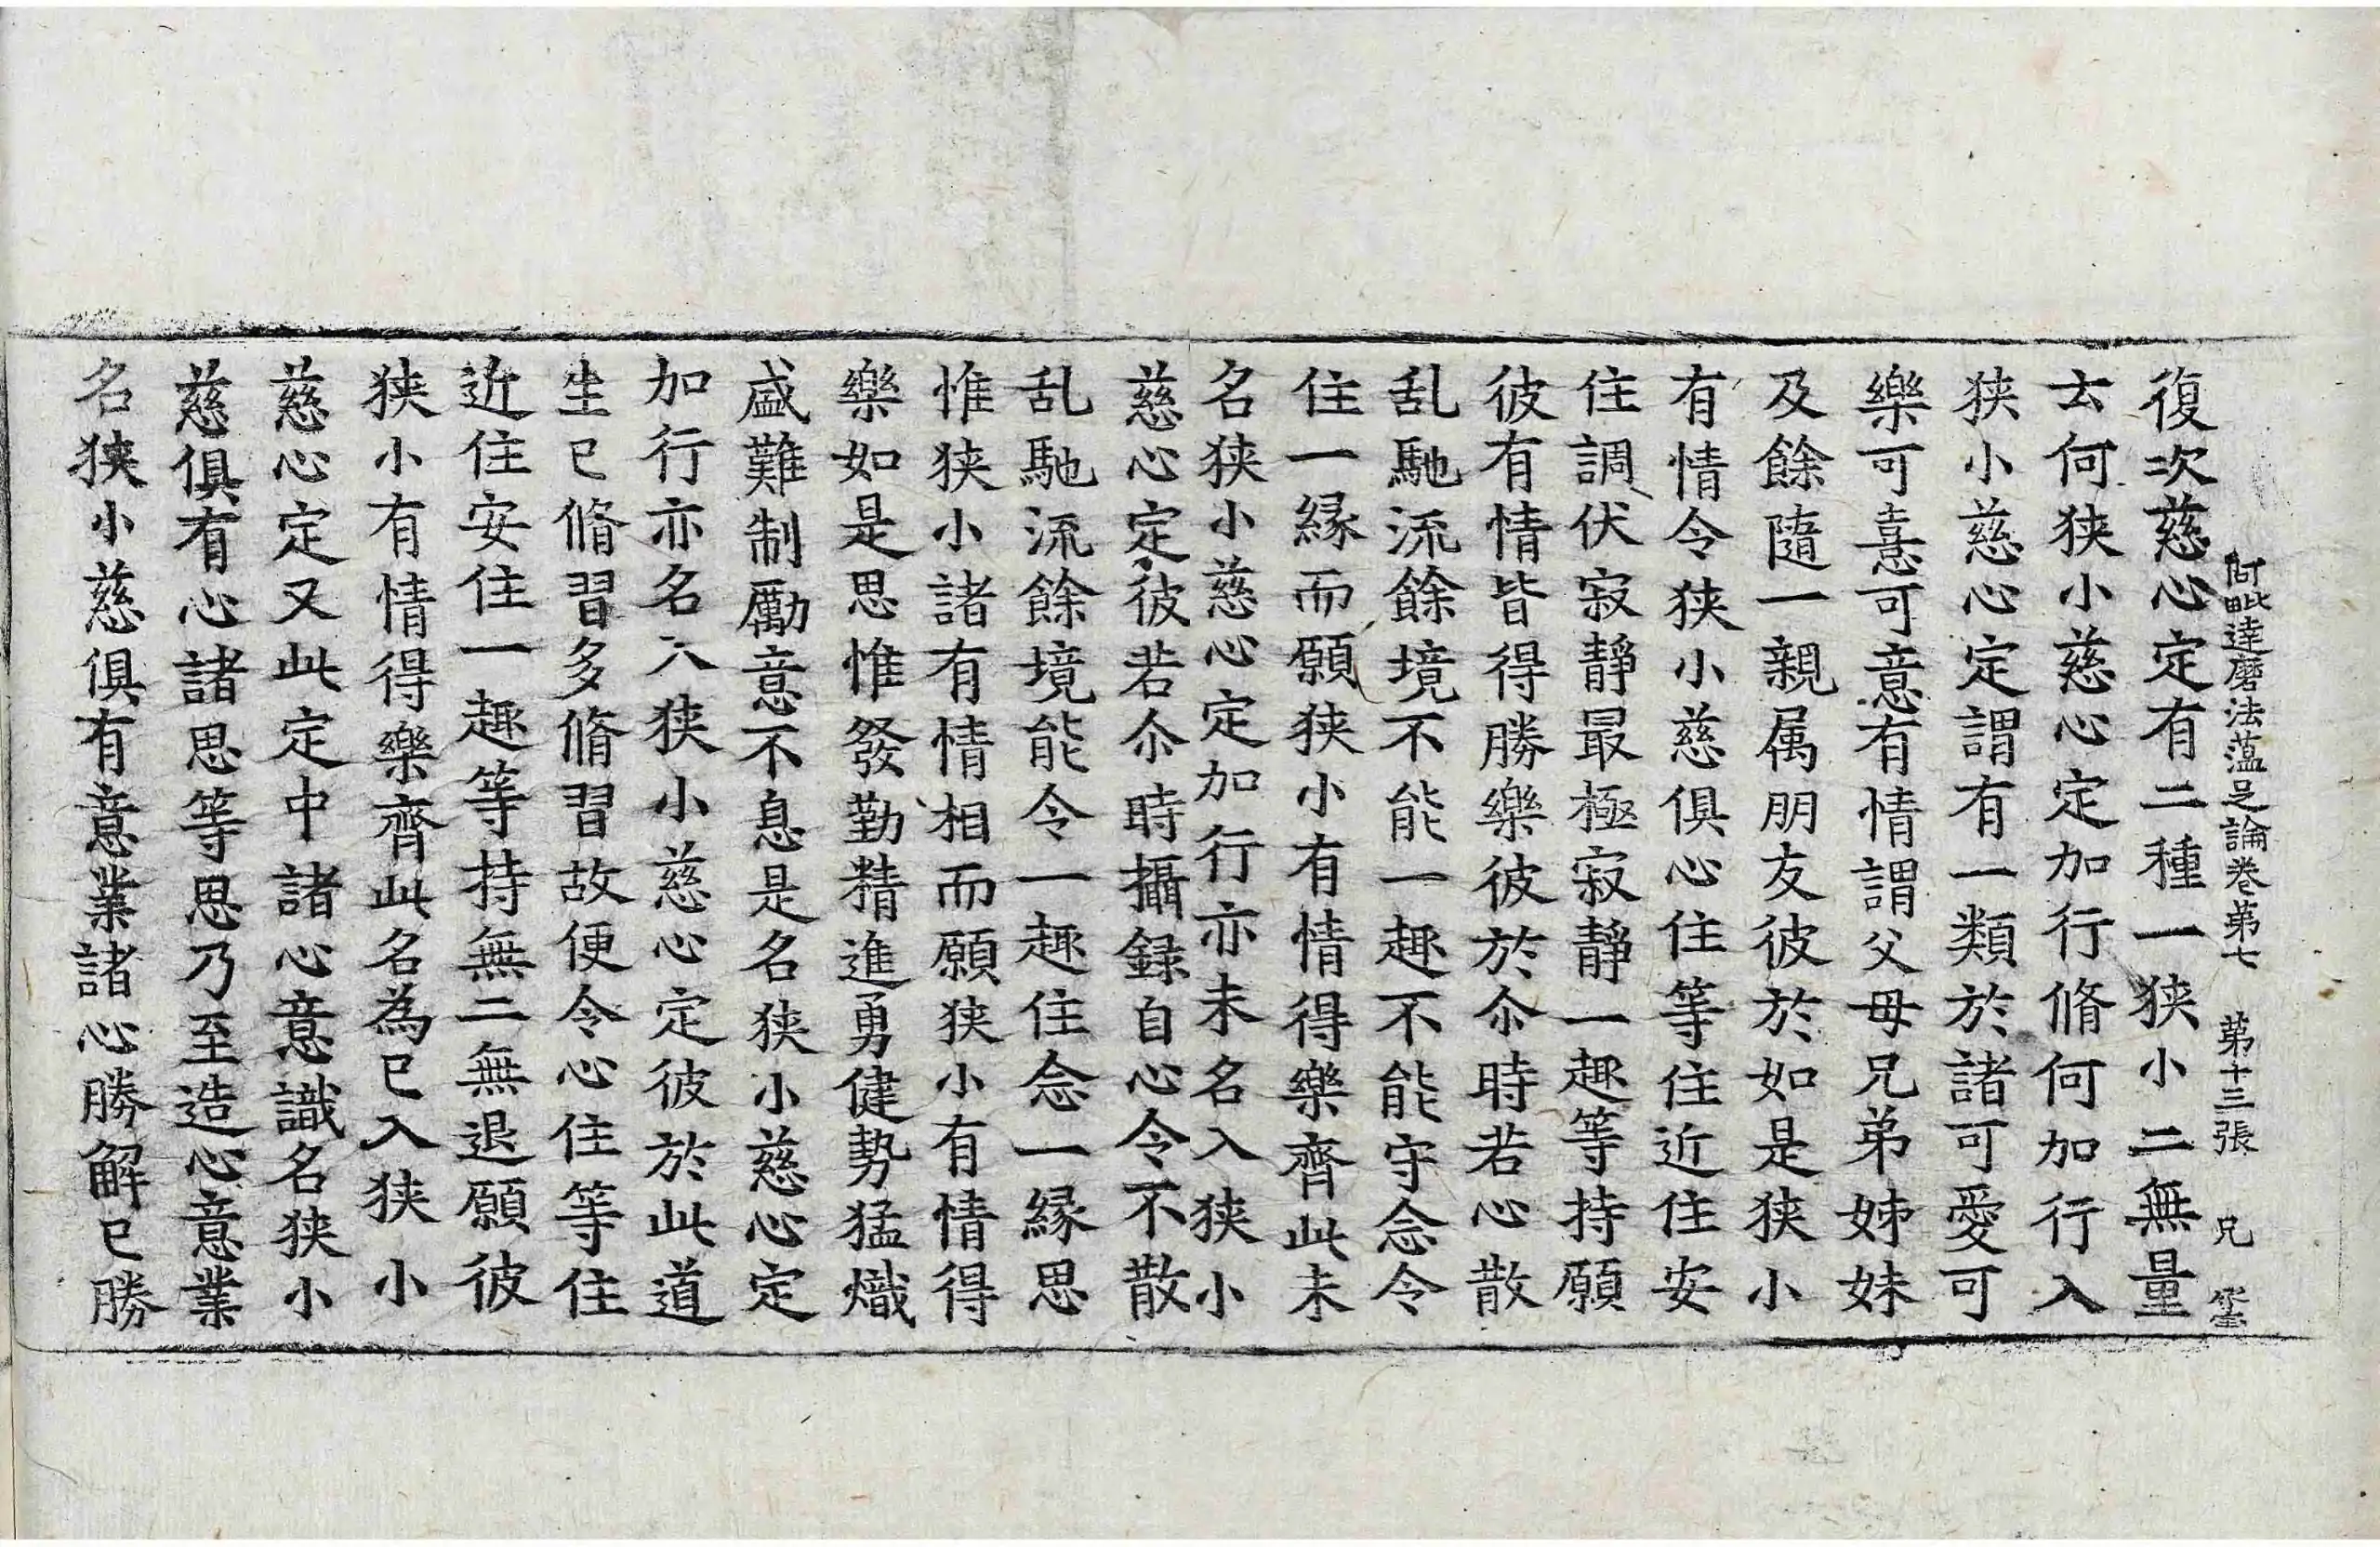 阿毗達磨法蘊足論卷第七 第十三張 兄
復次慈心定有二種一狹小二無量
云何狹小慈心定加行脩何加行入
狹小慈心定謂有一類於諸可愛可
樂可憙可意有情謂父母兄弟姊妹
及餘隨一親属朋友彼於如是狹小
有情令狹小慈俱心住等住近住安
住調伏寂靜最極寂靜一趣等持願
彼有情皆得勝樂彼於尒時若心散
乱馳流餘境不能一趣不能守念令
住一緣而願狹小有情得樂齊此未
名狹小慈心定加行亦未名入狹小
慈心定彼若尒時攝録自心令不散
乱馳流餘境能令一趣住念一緣思
惟狹小諸有情相而願狹小有情得
樂如是思惟發勤精進勇健勢猛熾
盛難制勵意不息是名狹小慈心定
加行亦名入狹小慈心定彼於此道
生已脩習多脩習故便令心住等住
近住安住一趣等持無二無退願彼
狹小有情得樂齊此名為已入狹小
慈心定又此定中諸心意識名狹小
慈俱有心諸思等思乃至造心意業
名狹小慈俱有意業諸心勝解已勝